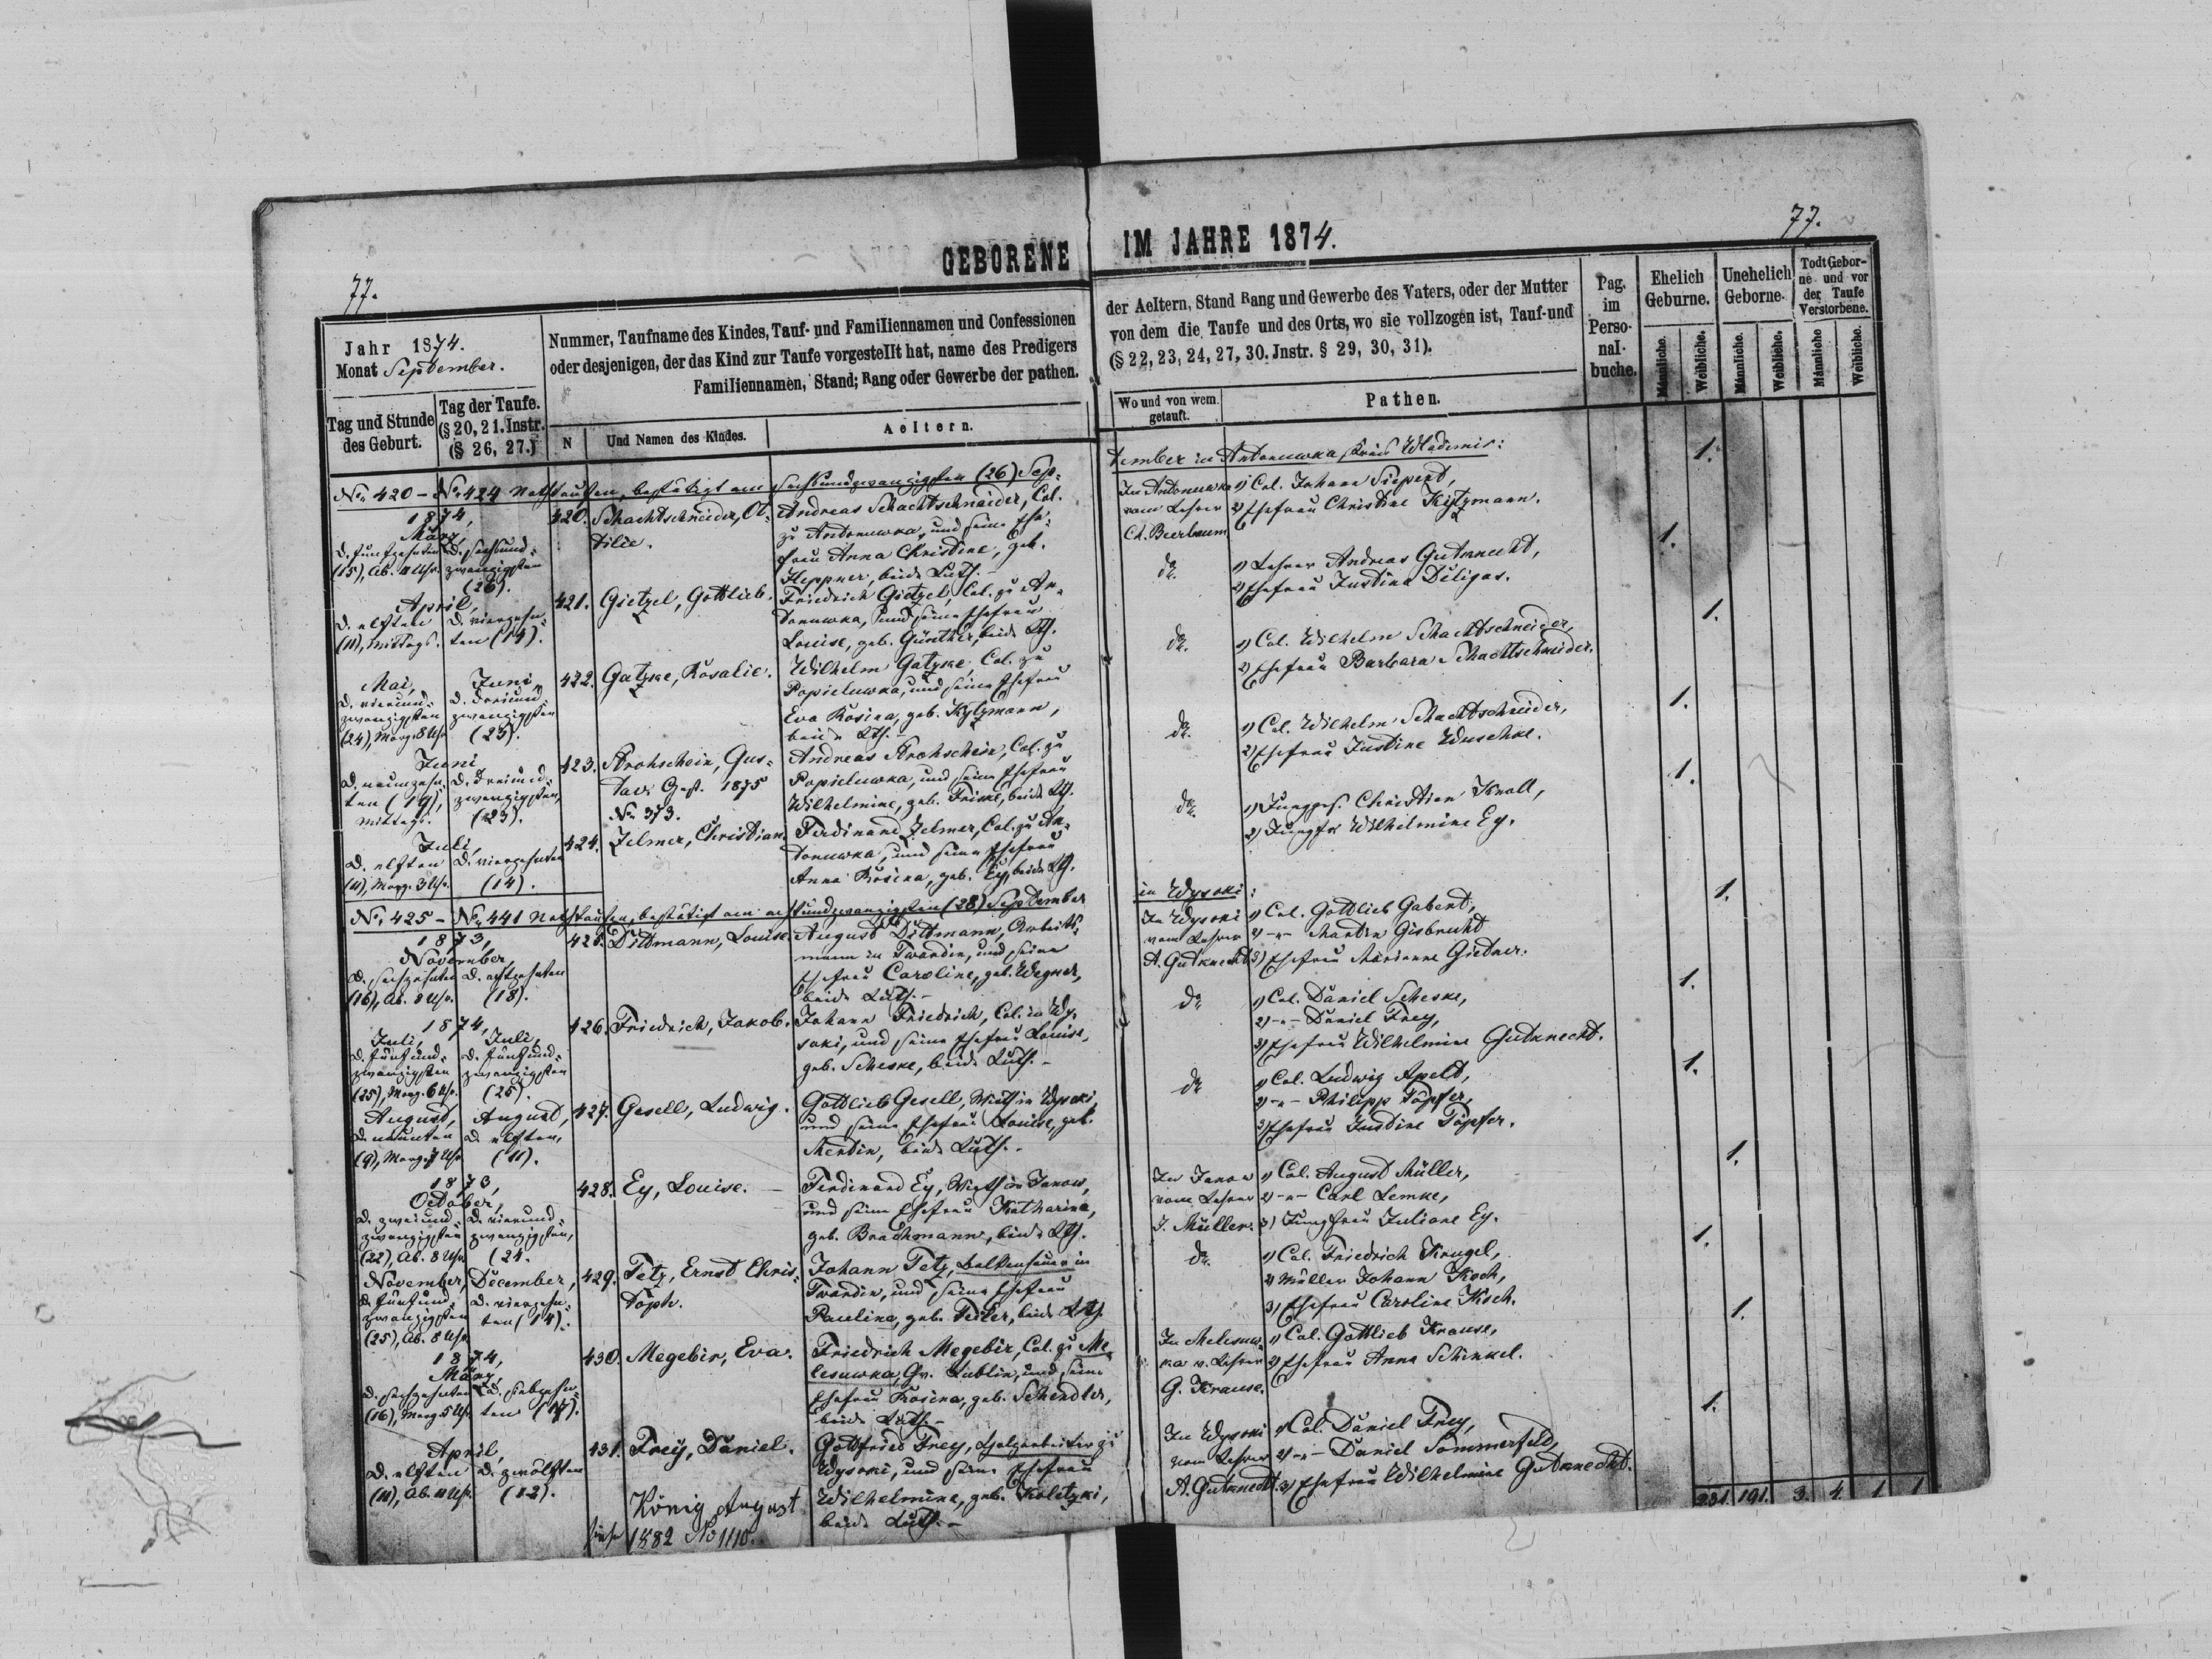 77.
77.
GEBORENE IM JAHRE 1874.
Jahr 1874.
Monat September.
Tag und Stunde des Geburt.
Tag der Taufe.
(§ 20, 21. Instr.
(§ 26, 27.)
Nummer, Taufname des Kindes, Tauf- und Familiennamen und Confessionen
oder desjenigen, der das Kind zur Taufe vorgestellt hat, name des Predigers
Familiennamen, Stand; Rang oder Gewerbe der pathen.
N
Und Namen des Kindes.
Aeltern.
der Aeltern, Stand Rang und Gewerbe des Vaters, oder der Mutter
von dem die Taufe und des Orts, wo sie vollzogen ist, Tauf-und
(§ 22, 23, 24, 27, 30. Jnstr. § 29, 30, 31).
Wo und von wem getauft.
Pathen.
Pag. im Perso-nal-buche.
Ehelich Geburne.
Unehelich Geborne.
Todt Gebor-ne und vor der Taufe Verstorbene.
Männliche.
Weibliche.
Männliche.
Weibliche.
Männliche
Weibliche.
No. 420 - No. 424 Nothtaufen, bestätigt am sechsundzwanzigsten (26) Sep-
tember in Antonuwka, Kreis Wladimir:
1874,
März,
d. fünfzehnten
(15), Ab. 11 Uhr.
d. sechsund-
zwanzigsten
(26).
420. Schachtschneider, Ot-
tilie.
Andreas Schachtschneider, Col.
zu Antonuwka, und seine Ehe-
frau Anna Christine, geb.
Heppner, beide Luth. -
In Antonuwka
vom Lehrer
Ch. Bierbaum
1) Col. Johann Siepert,
2) Ehefrau Christine Kitzmann.
1.
April,
d. elften
(11), Mittags.
d. vierzehn-
ten (14).
421. Gietzel, Gottlieb.
Friedrich Gietzel, Col. zu An-
tonuwka, und seine Ehefrau
Louise, geb. Günther, beide Lth.
do.
1) Lehrer Andreas Gutknecht,
2) Ehefrau Justina Deligas.
1.
Mai,
d. vierund-
zwanzigsten
(24), Morg. 8 Uhr
Juni,
d. dreiund-
zwanzigsten
(23).
422. Gatzke, Rosalie.
Wilhelm Gatzke, Col. zu
Popieluwka, und seine Ehefrau
Eva Rosina, geb. Kytzmann,
beide Lth. -
do.
1) Col. Wilhelm Schachtschneider,
2) Ehefrau Barbara Schachtschneider.
1.
Juni,
d. neunzehn-
ten (19),
Mittags.
d. dreiund-
zwanzigsten,
(23).
423. Strohschein, Gus-
tav. Gest. 1875
No. 373.
Andreas Strohschein, Col. zu
Popieluwka, und seine Ehefrau
Wilhelmine, geb. Friske, beide Lth.
do.
1) Col. Wilhelm Schachtschneider,
2) Ehefrau Justine Wuschke.
1.
Juli,
d. elften
(11), Morg. 3 Uhr.
d. vierzehnten
(14).
424. Zelmer, Christian.
Ferdinand Zelmer, Col. zu An-
tonuwka, und seine Ehefrau
Anna Rosina, geb. Ey, beide Lth.
do.
1) Junggs. Christian Knoll,
2) Jungfr. Wilhelmine Ey.
1.
No. 425 - No. 441 Nothtaufen, bestätigt am achtundzwanzigsten (28) September
in Wysoki:
1873,
November,
d. sechzehnten
(16), Ab. 8 Uhr.
d. achtzehnten
(18).
425. Dittmann, Louise.
August Dittmann, Arbeits-
mann in Twardin, und seine
Ehefrau Caroline, geb. Wegner,
beide Luth. -
In Wysoki
vom Lehrer
A. Gutknecht
1) Col. Gottlieb Gabert,
2) -"- Martin Gisbrecht
3) Ehefrau Marianne Gietner.
1.
1874,
Juli,
d. fünfund-
zwanzigsten
(25), Morg. 6 Uhr.
Juli,
d. fünfund-
zwanzigsten
(25).
426. Friedrich, Jakob.
Johann Friedrich, Col. in Wy-
soki, und seine Ehefrau Louise,
geb. Scheske, beide Luth. -
do
1) Col. Daniel Scheske,
2) -"- Daniel Frey,
3) Ehefrau Wilhelmine Gutknecht.
1.
August,
d. neunten
(9), Morg. 7 Uhr
August,
d. elften,
(11).
427. Gesell, Ludwig.
Gottlieb Gesell, Wirth in Wysoki,
und seine Ehefrau Louise, geb.
Mentin, beide Luth. -
do
1) Col. Ludwig Apelt,
2) -"- Philipp Töpfer,
3) Ehefrau Justine Töpfer.
1.
1873,
October,
d. zweiund-
zwanzigsten
(22), Ab. 8 Uhr.
d. vierund-
zwanzigsten,
(24.
428. Ey, Louise. -
Ferdinand Ey, Wirth in Janow,
und seine Ehefrau Katharina,
geb. Brachmann, beide Lth.
In Janow
vom Lehrer
J. Müller.
1) Col. August Müller,
2) -"- Carl Lemke,
3) Jungfrau Juliane Ey.
1.
November,
d. fünfund-
zwanzigsten
(25), Ab. 8 Uhr.
December,
d. vierzehn-
ten (14).
429. Tetz, Ernst Chris-
toph.
Johann Tetz, Balkenhauer in
Twardin, und seine Ehefrau
Paulina, geb. Feiler, beide Lth.
do.
1) Col. Friedrich Krugel,
2) Müller Johann Koch,
3) Ehefrau Caroline Koch.
1.
1874,
März,
d. sechzehnten
(16), Morg. 5 Uhr.
d. siebzehn-
ten (17).
430. Megebir, Eva.
Friedrich Megebir, Col. zu Me-
lesuwka, Gv. Lublin, und seine
Ehefrau Rosina, geb. Schendler,
beide Luth. -
In Melesuw-
ka v. Lehrer
G. Krause.
1) Col. Gottlieb Krause,
2) Ehefrau Anna Schinkel.
1.
April,
d. elften
(11), Ab. 11 Uhr.
d. zwölften
(12).
431. Frey, Daniel.
Gottfried Frey, Holzarbeiter zu
Wysoki, und seine Ehefrau
Wilhelmine, geb. Koletzki,
beide Luth. -
In Wysoki
vom Lehrer
A. Gutknecht.
1) Col. Daniel Frey,
2) -"- Daniel Sommerfeld,
3) Ehefrau Wilhelmine Gutknecht.
1.
König August
siehe 1882 No 1110.
231. 191. 3. 4. 1. 1